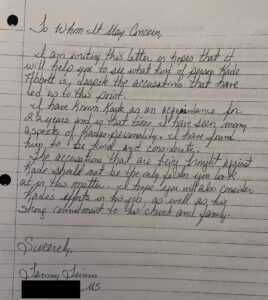 To Whom It May Concern,
I am writing this letter in hopes that it
will help you to see what kind of person Kade
Abbott is, despite the accusations that have
led us to this point.
I have known Kade as an acquaintance for
22 years and in that time I have seen many
aspects of Kades personality. I have found
him to be kind and considerate.
The accusations that are being brought against
Kade should not be the only factor you look
at in this matter. I hope you will also consider
Kade's efforts in his job, as well as his
strong commitment to his church and family.
Sincerely,
Tammy
, MS